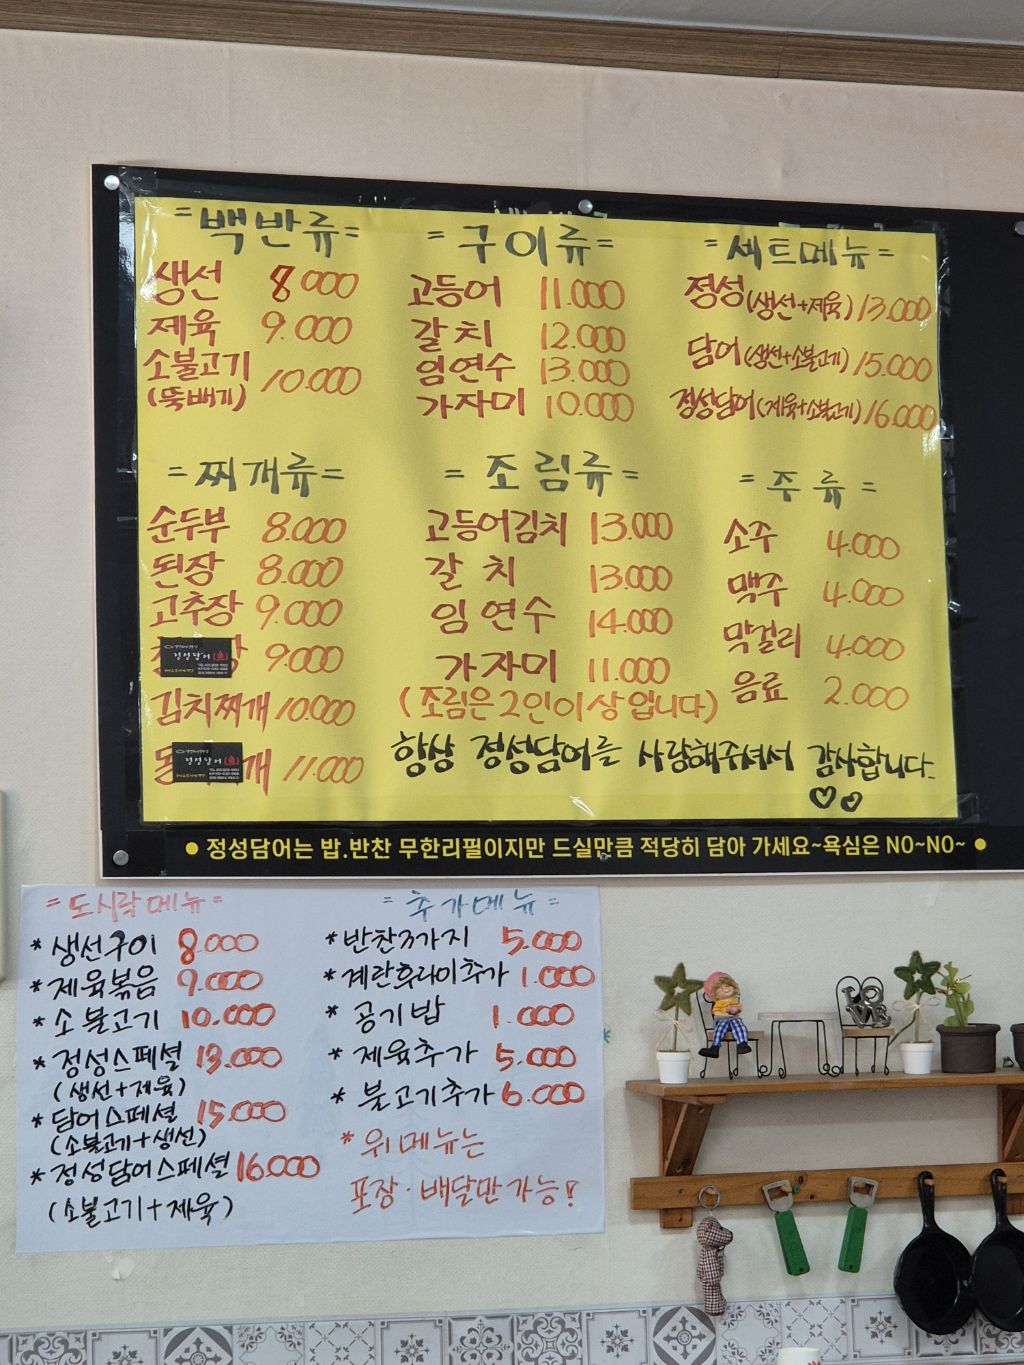 = 백반류 =
생선 8000
제육 9.000
소불고기
(뚝배기) 10.000
= 구이류 =
고등어 11.000
갈치 12.000
임연수 13.000
가자미 10.000
= 세트메뉴 =
정성(생선+제육) 13.000
담어(생선+소불고기) 15.000
정성담어(제육+소불고기) 16.000
= 찌개류 =
순두부 8.000
된장 8.000
고추장 9.000
9.000
김치찌개 10.000
개 11.000
= 조림류 =
고등어김치 13.000
갈치 13.000
임연수 14.000
가자미 11.000
(조림은 2인이상입니다)
= 주류 =
소주 4.000
맥주 4.000
막걸리 4.000
음료 2.000
항상 정성담어를 사랑해주셔서 감사합니다.
정성담어
정성담어
● 정성담어는 밥.반찬 무한리필이지만 드실만큼 적당히 담아 가세요~욕심은 NO~NO~ ●
= 도시락메뉴 =
* 생선구이 8.000
* 제육볶음 9.000
* 소불고기 10.000
* 정성스페셜 13.000
(생선+제육)
* 담어스페셜 15.000
(소불고기+생선)
* 정성담어스페셜 16.000
(소불고기+제육)
= 추가메뉴 =
* 반찬3가지 5.000
* 계란후라이추가 1.000
* 공기밥 1.000
* 제육추가 5.000
* 불고기추가 6.000
* 위메뉴는
포장·배달만 가능!
LOVE